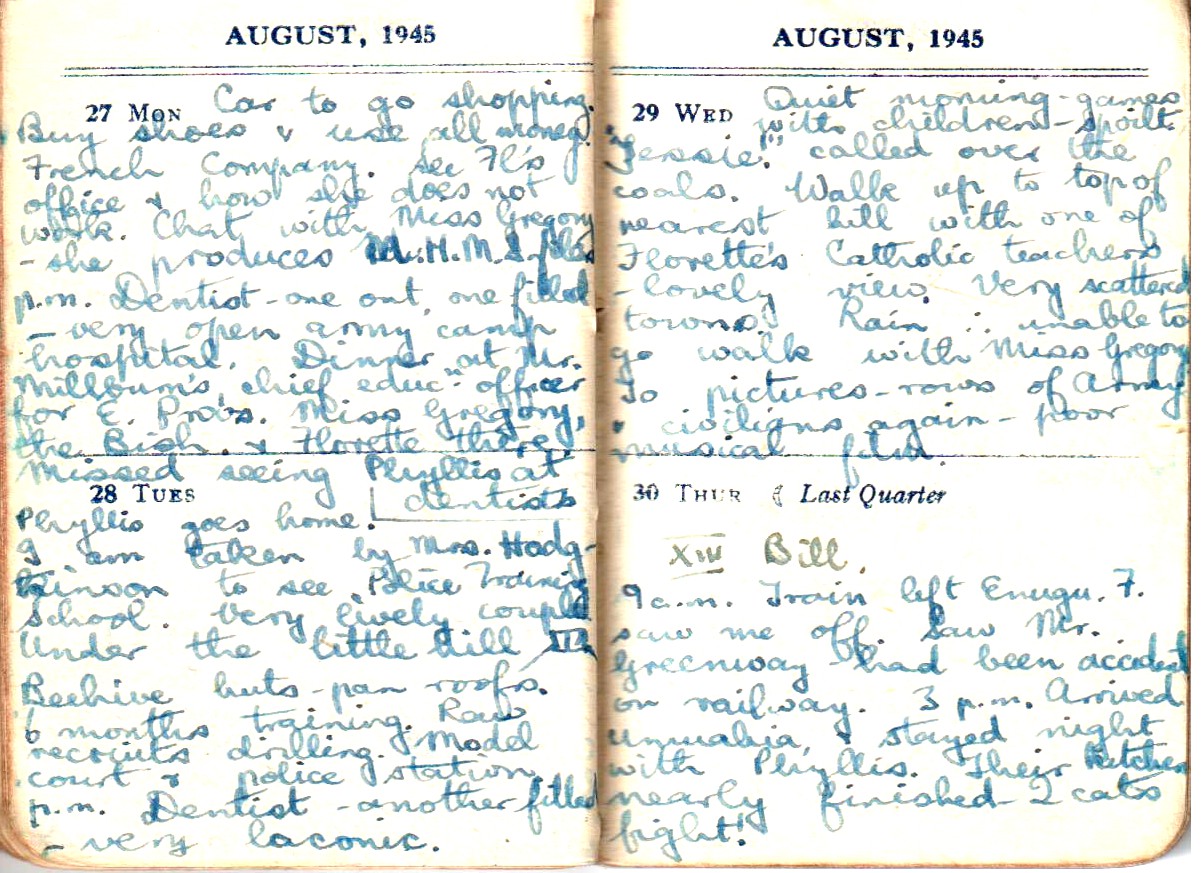 AUGUST, 1945
27 MON Car to go shopping.
Buy shoes & use all money.
French Company. See Fl's
office & how she does not
work. Chat with Miss Gregory
- she produces H.M.S.
p.m. Dentist - one out, one filled
- very open army camp
hospital. Dinner at Mr.
Millburn's chief educ" officer
for E. Prov's. Miss Gregory,
the Bish. & Florette there.
Missed seeing Phyllis at
dentists
28 TUES
Phyllis goes home.
I am taken by Mrs. Hodg-
kinson to see Police Training
School. Very lively couple
Under the little hill
Beehive huts - pan roofs.
6 months training. Raw
recruits drilling. Model
court & police station
p.m. Dentist - another filled
- very laconic.
AUGUST, 1945
29 WED Quiet morning - games
with children - spoilt.
"Jessie!" called over the
coals. Walk up to top of
nearest hill with one of
Florette's Catholic teachers
- lovely view. Very scattered
towns. Rain ∴ unable to
go walk with Miss Gregory
so pictures - rows of Army
& civilians again - poor
musical film.
30 THUR Last Quarter
XIV Bill.
9 a.m. Train left Enugu. F.
saw me off. Saw Mr.
Greenway - had been accident
on railway. 3 p.m. Arrived
Umuahia, & stayed night
with Phyllis. Their kitchen
nearly finished - 2 cats
fight!